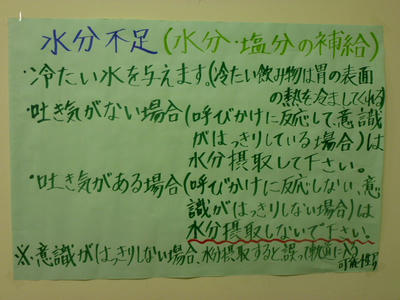 水分不足(水分・塩分の補給)
・冷たい水を与えます。(冷たい飲み物は胃の表面
の熱を冷ましてくれる)
・吐き気がない場合(呼びかけに反応して、意識
がはっきりしている場合)は
水分摂取して下さい。
・吐き気がある場合(呼びかけに反応しない、意
識がはっきりしない場合)は
水分摂取しないで下さい。
※意識がはっきりしない場合、水分摂取すると誤って軌道に入る
可能性